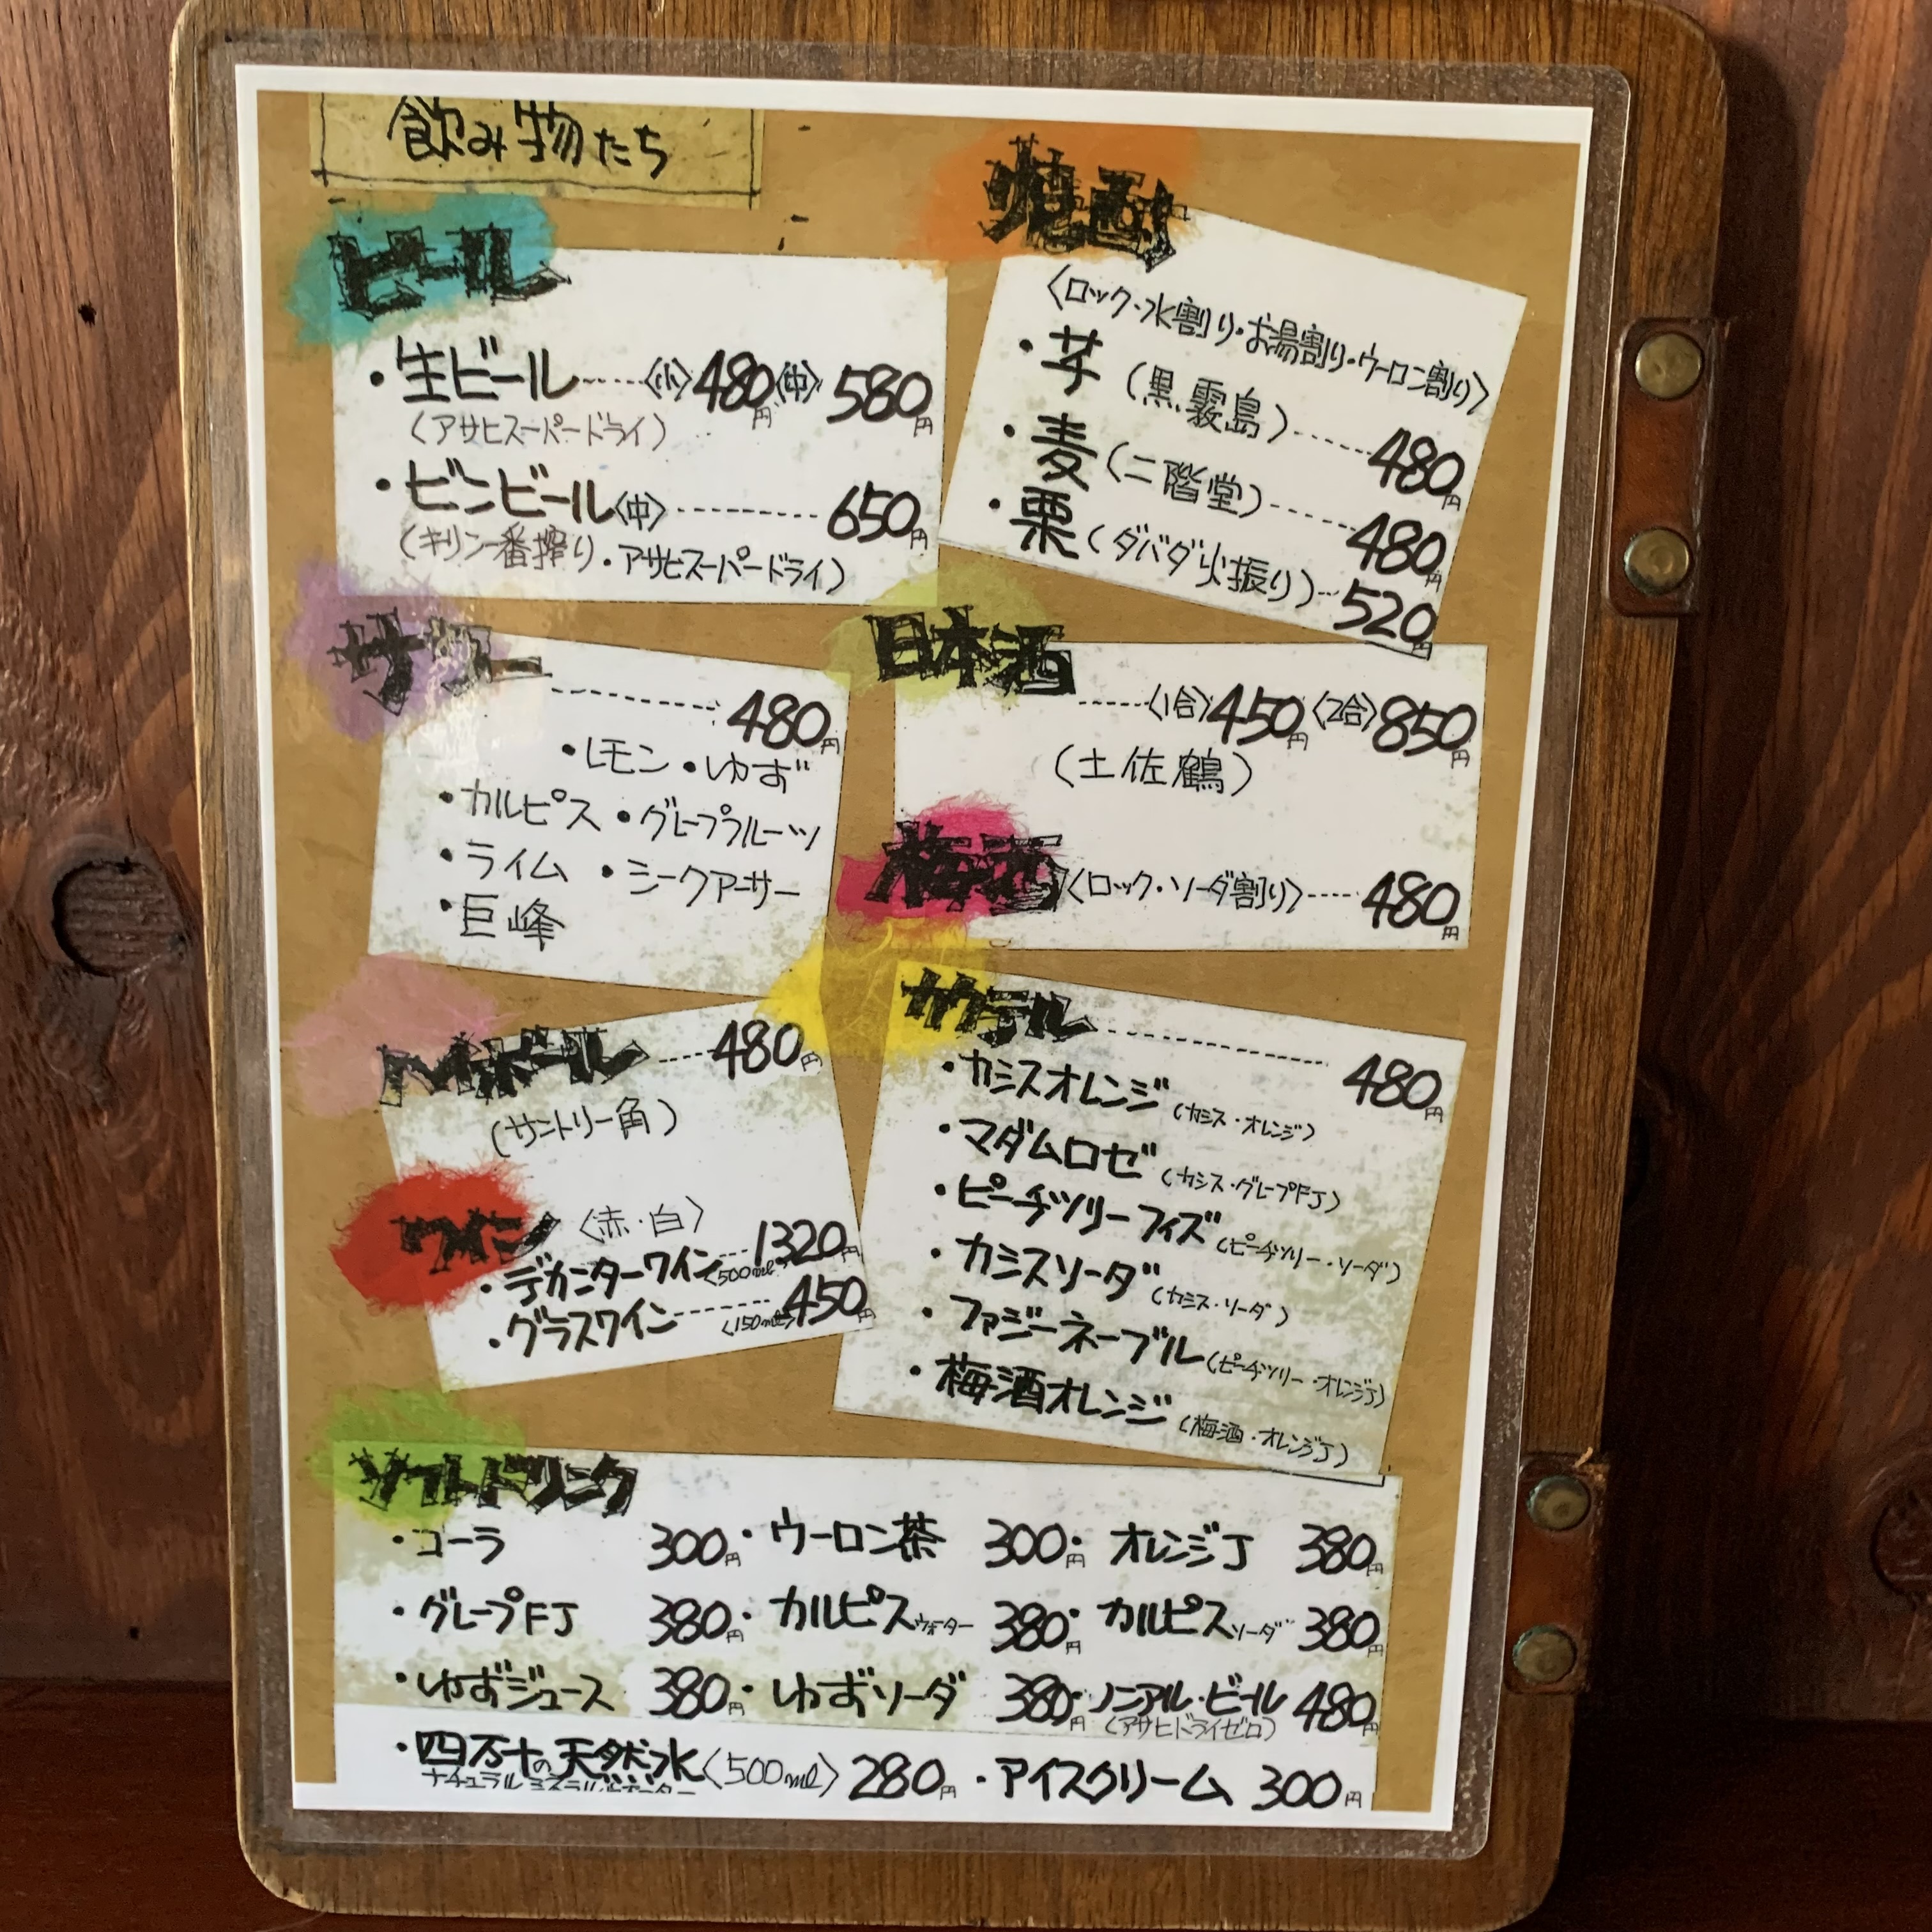 飲み物たち
ビール
・生ビール……〈小〉480円〈中〉580円
（アサヒスーパードライ）
・ビンビール〈中〉………650円
（キリン一番搾り・アサヒスーパードライ）
焼酎
〈ロック・水割り・お湯割り・ウーロン割り〉
・芋（黒霧島）……480円
・麦（二階堂）……480円
・栗（ダバダ火振り）…520円
サワー………480円
・レモン・ゆず
・カルピス・グレープフルーツ
・ライム・シークアーサー
・巨峰
日本酒……〈1合〉450円〈2合〉850円
（土佐鶴）
梅酒〈ロック・ソーダ割り〉……480円
ハイボール……480円
（サントリー角）
ワイン〈赤・白〉
・デカンターワイン〈500ml〉…1320円
・グラスワイン………〈150ml〉450円
カクテル………480円
・カシスオレンジ（カシス・オレンジ）
・マダムロゼ（カシス・グレープFJ）
・ピーチツリーフィズ（ピーチツリー・ソーダ）
・カシスソーダ（カシス・ソーダ）
・ファジーネーブル（ピーチツリー・オレンジJ）
・梅酒オレンジ（梅酒・オレンジJ）
ソフトドリンク
・コーラ 300円・ウーロン茶 300円・オレンジJ 380円
・グレープFJ 380円・カルピスウォーター 380円・カルピスソーダ 380円
・ゆずジュース 380円・ゆずソーダ 380円・ノンアル・ビール 480円
（アサヒドライゼロ）
・四万十の天然水〈500ml〉280円・アイスクリーム 300円
ナチュラルミネラルウォーター